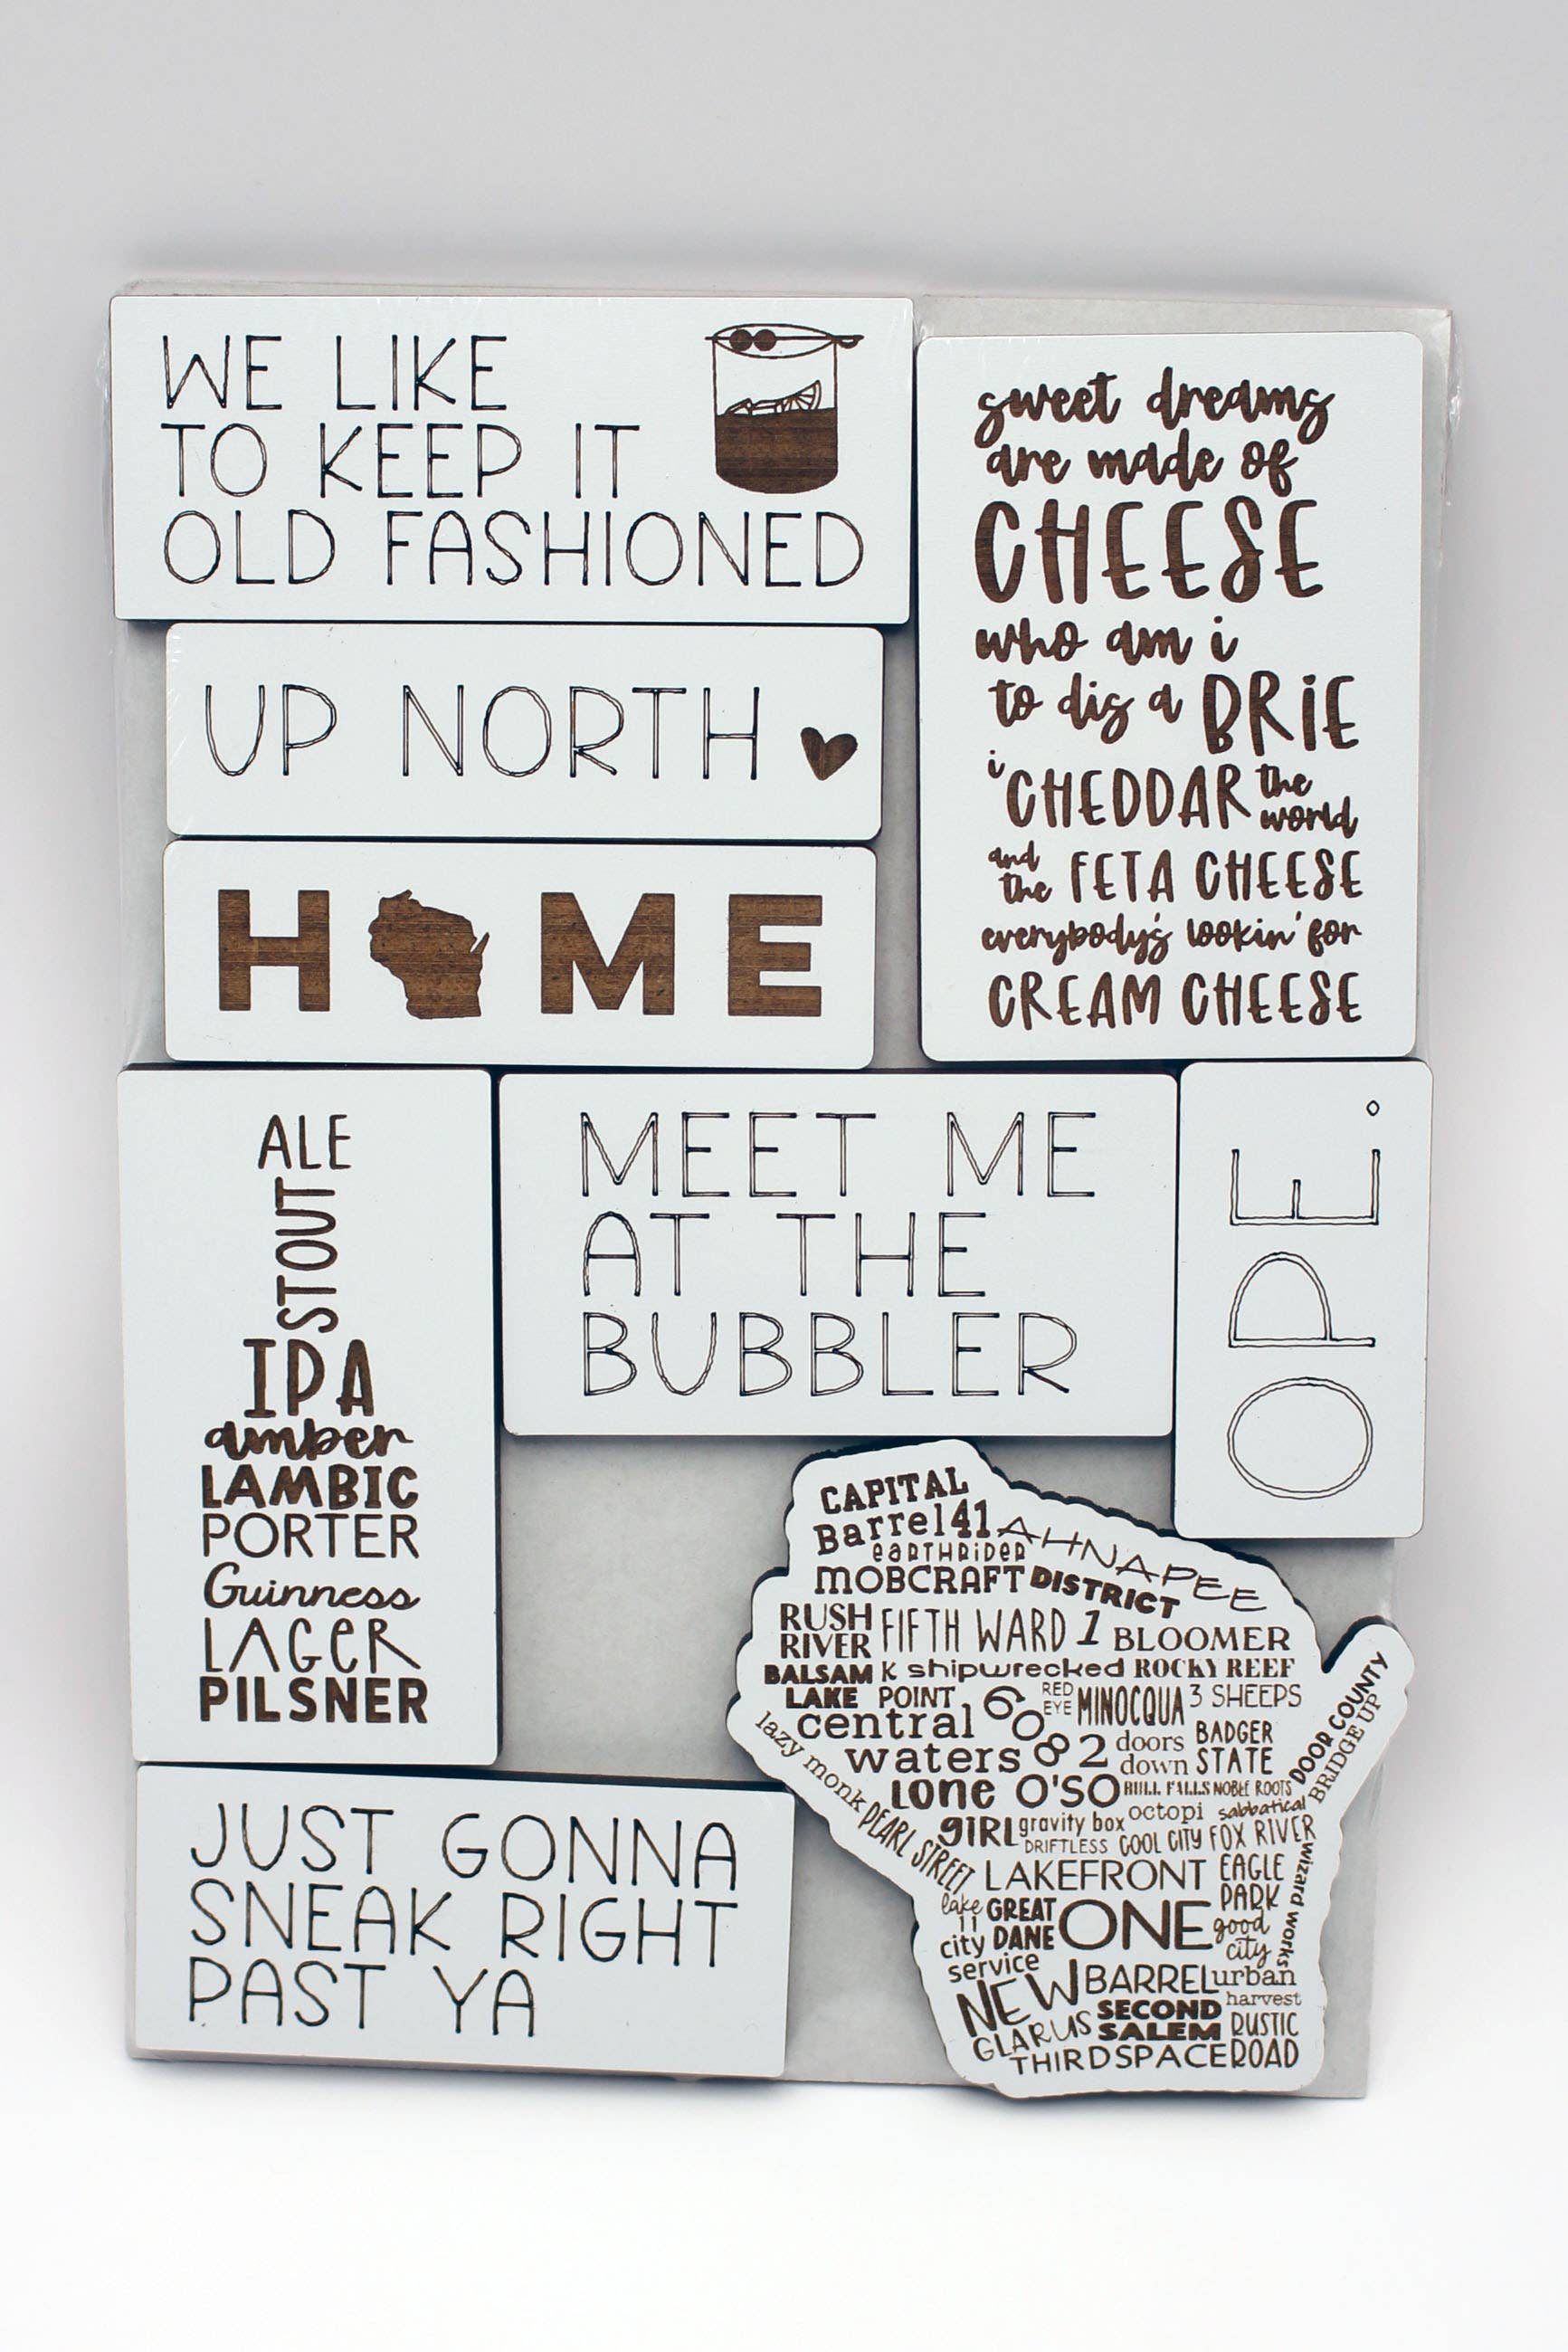 WE LIKE
TO KEEP IT
OLD FASHIONED
UP NORTH
H ME
sweet dreams
are made of
CHEESE
who am i
to dis a BRiE
i CHEDDAR the world
and the FETA CHEESE
everybody's lookin' for
CREAM CHEESE
ALE
STOUT
IPA
amber
LAMBIC
PORTER
Guinness
LAGER
PILSNER
MEET ME
AT THE
BUBBLER
OPE.
JUST GONNA
SNEAK RIGHT
PAST YA
CAPITAL
Barrel41 AHNAPEE
EARTHRIDER
MOBCRAFT DISTRICT
RUSH RIVER FIFTH WARD 1 BLOOMER
BALSAM K shipwrecked ROCKY REEF
LAKE POINT 6082 RED EYE MINOCQUA 3 SHEEPS
central waters doors down BADGER STATE
DOOR COUNTY
BRIDGE UP
lazy monk
Lone GIRL O'SO BULL FALLS NOBLE ROOTS
gravity box octopi sabbatical
PEARL STREET DRIFTLESS COOL CITY FOX RIVER
LAKEFRONT EAGLE PARK
wizard works
lake 11 GREAT DANE ONE good city
city service
NEW GLARUS BARREL urban harvest
SECOND SALEM RUSTIC ROAD
THIRDSPACE